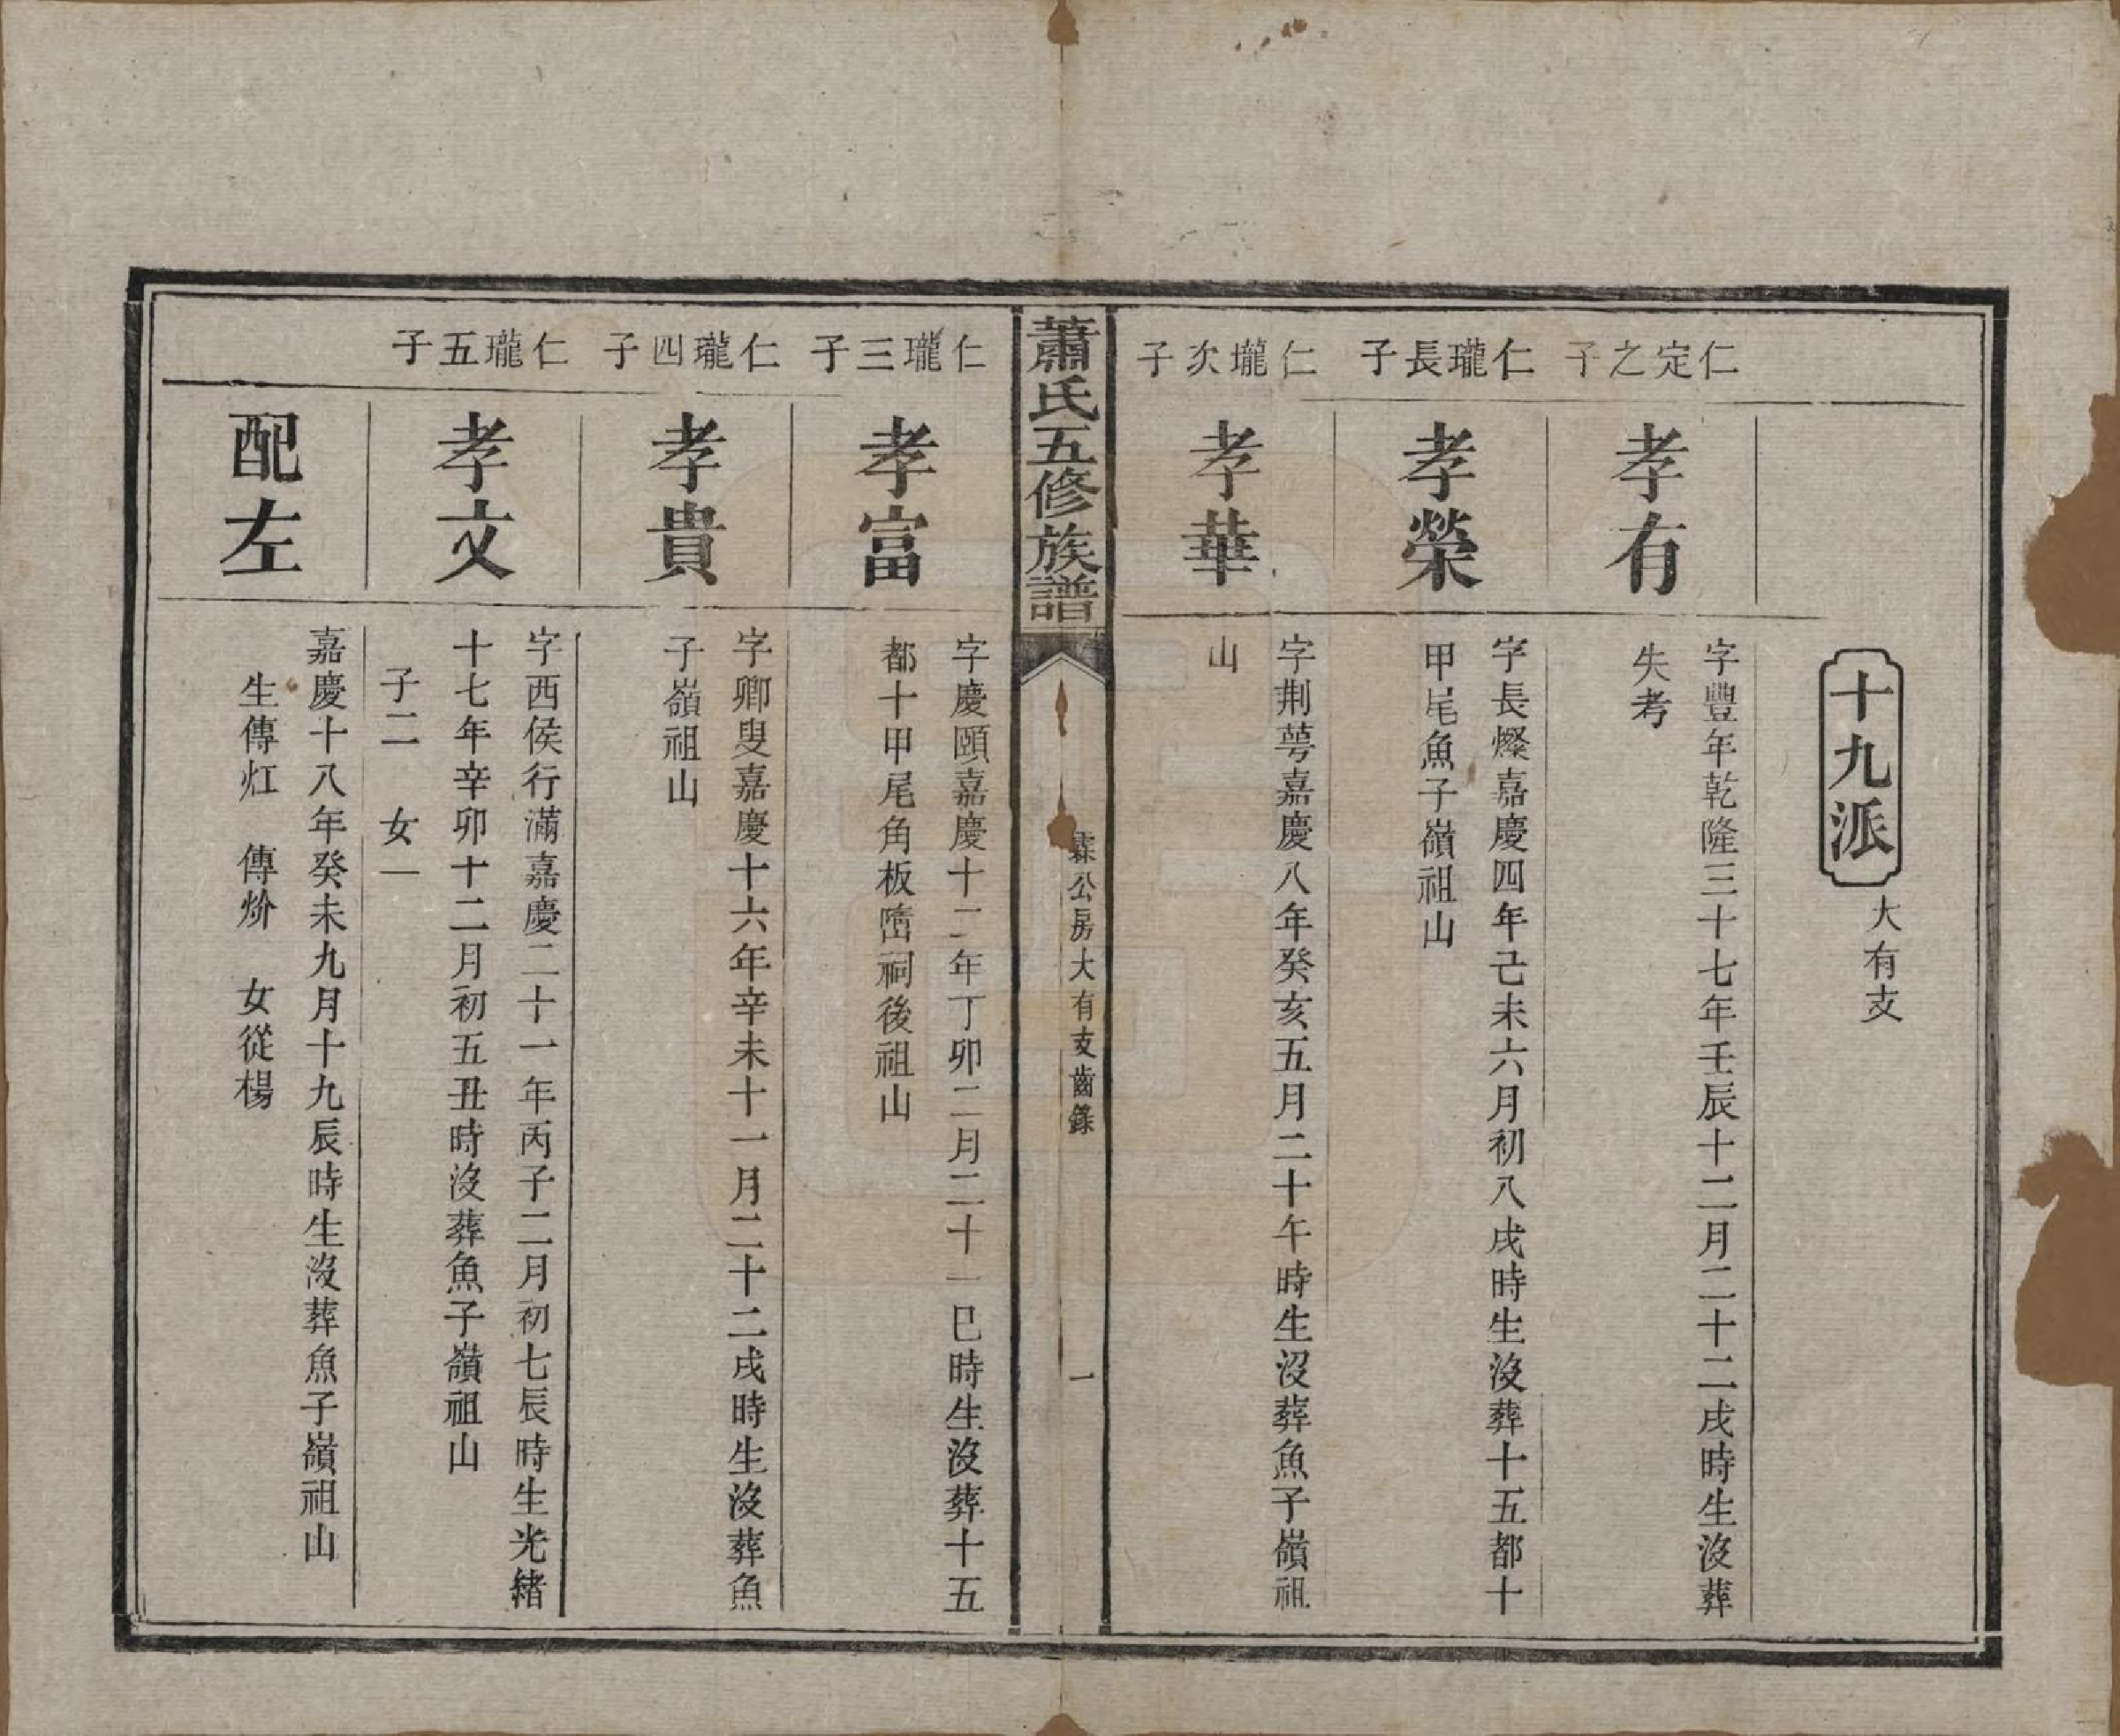 十九派
大有支
仁定之子
孝有
字豐年乾隆三十七年壬辰十二月二十二戌時生沒葬
失考
仁瓏長子
孝榮
字長燦嘉慶四年己未六月初八戌時生沒葬十五都十
甲尾魚子嶺祖山
仁瓏次子
孝華
字荆萼嘉慶八年癸亥五月二十午時生沒葬魚子嶺祖
山
蕭氏五修族譜
霖公房大有支齒錄
一
仁瓏三子
孝富
字慶頤嘉慶十二年丁卯二月二十一巳時生沒葬十五
都十甲尾角板 祠後祖山
仁瓏四子
孝貴
字卿叟嘉慶十六年辛未十一月二十二戌時生沒葬魚
子嶺祖山
仁瓏五子
孝文
字西侯行滿嘉慶二十一年丙子二月初七辰時生光緒
十七年辛卯十二月初五丑時沒葬魚子嶺祖山
子二 女一
配左
嘉慶十八年癸未九月十九辰時生沒葬魚子嶺祖山
生傳灴 傳炌 女從楊